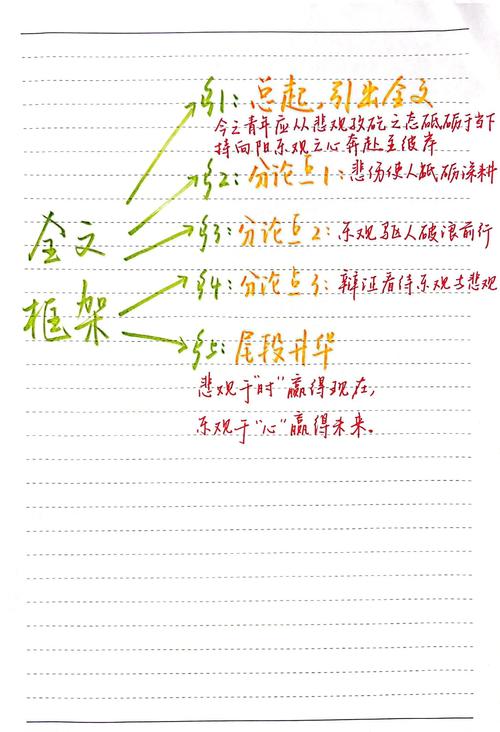 全文
框架
§1: 总起,引出全文
今之青年应从悲观孜矻之态砥砺于当下
持向阳乐观之心奔赴至彼岸
§2: 分论点1: 悲伤使人砥砺深耕
§3: 分论点2: 乐观驱人破浪前行
§4: 分论点3: 辩证看待乐观与悲观
§5: 尾段升华
悲观于"时"赢得现在,
乐观于"心"赢得未来。